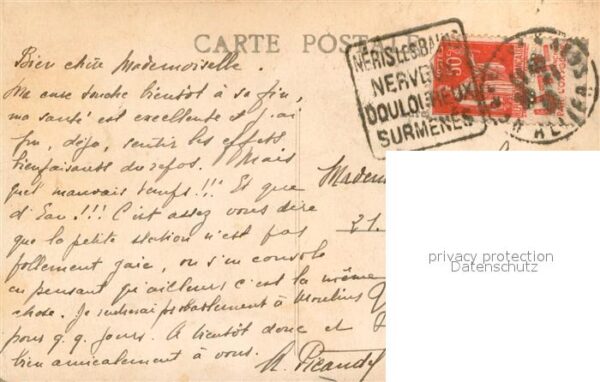 CARTE POSTALE
NERIS LES BAINS
NERVEUX
DOULOUREUX
SURMENÉS
50c
ALLIER
Bien chère Mademoiselle.
Ma cure touche bientôt à sa fin,
ma santé est excellente et j'ai
pu, déjà, sentir les effets
bienfaisants du repos. Mais
quel mauvais temps!!! Et que
d'Eau!!! C'est assez vous dire
que la petite station n'est pas
follement gaie, on s'en console
en pensant qu'ailleurs c'est la même
chose. Je rentrerai probablement à Moulins
pour q.q. jours. A bientôt donc et
bien amicalement à vous.
Madem
21.
privacy protection
Datenschutz